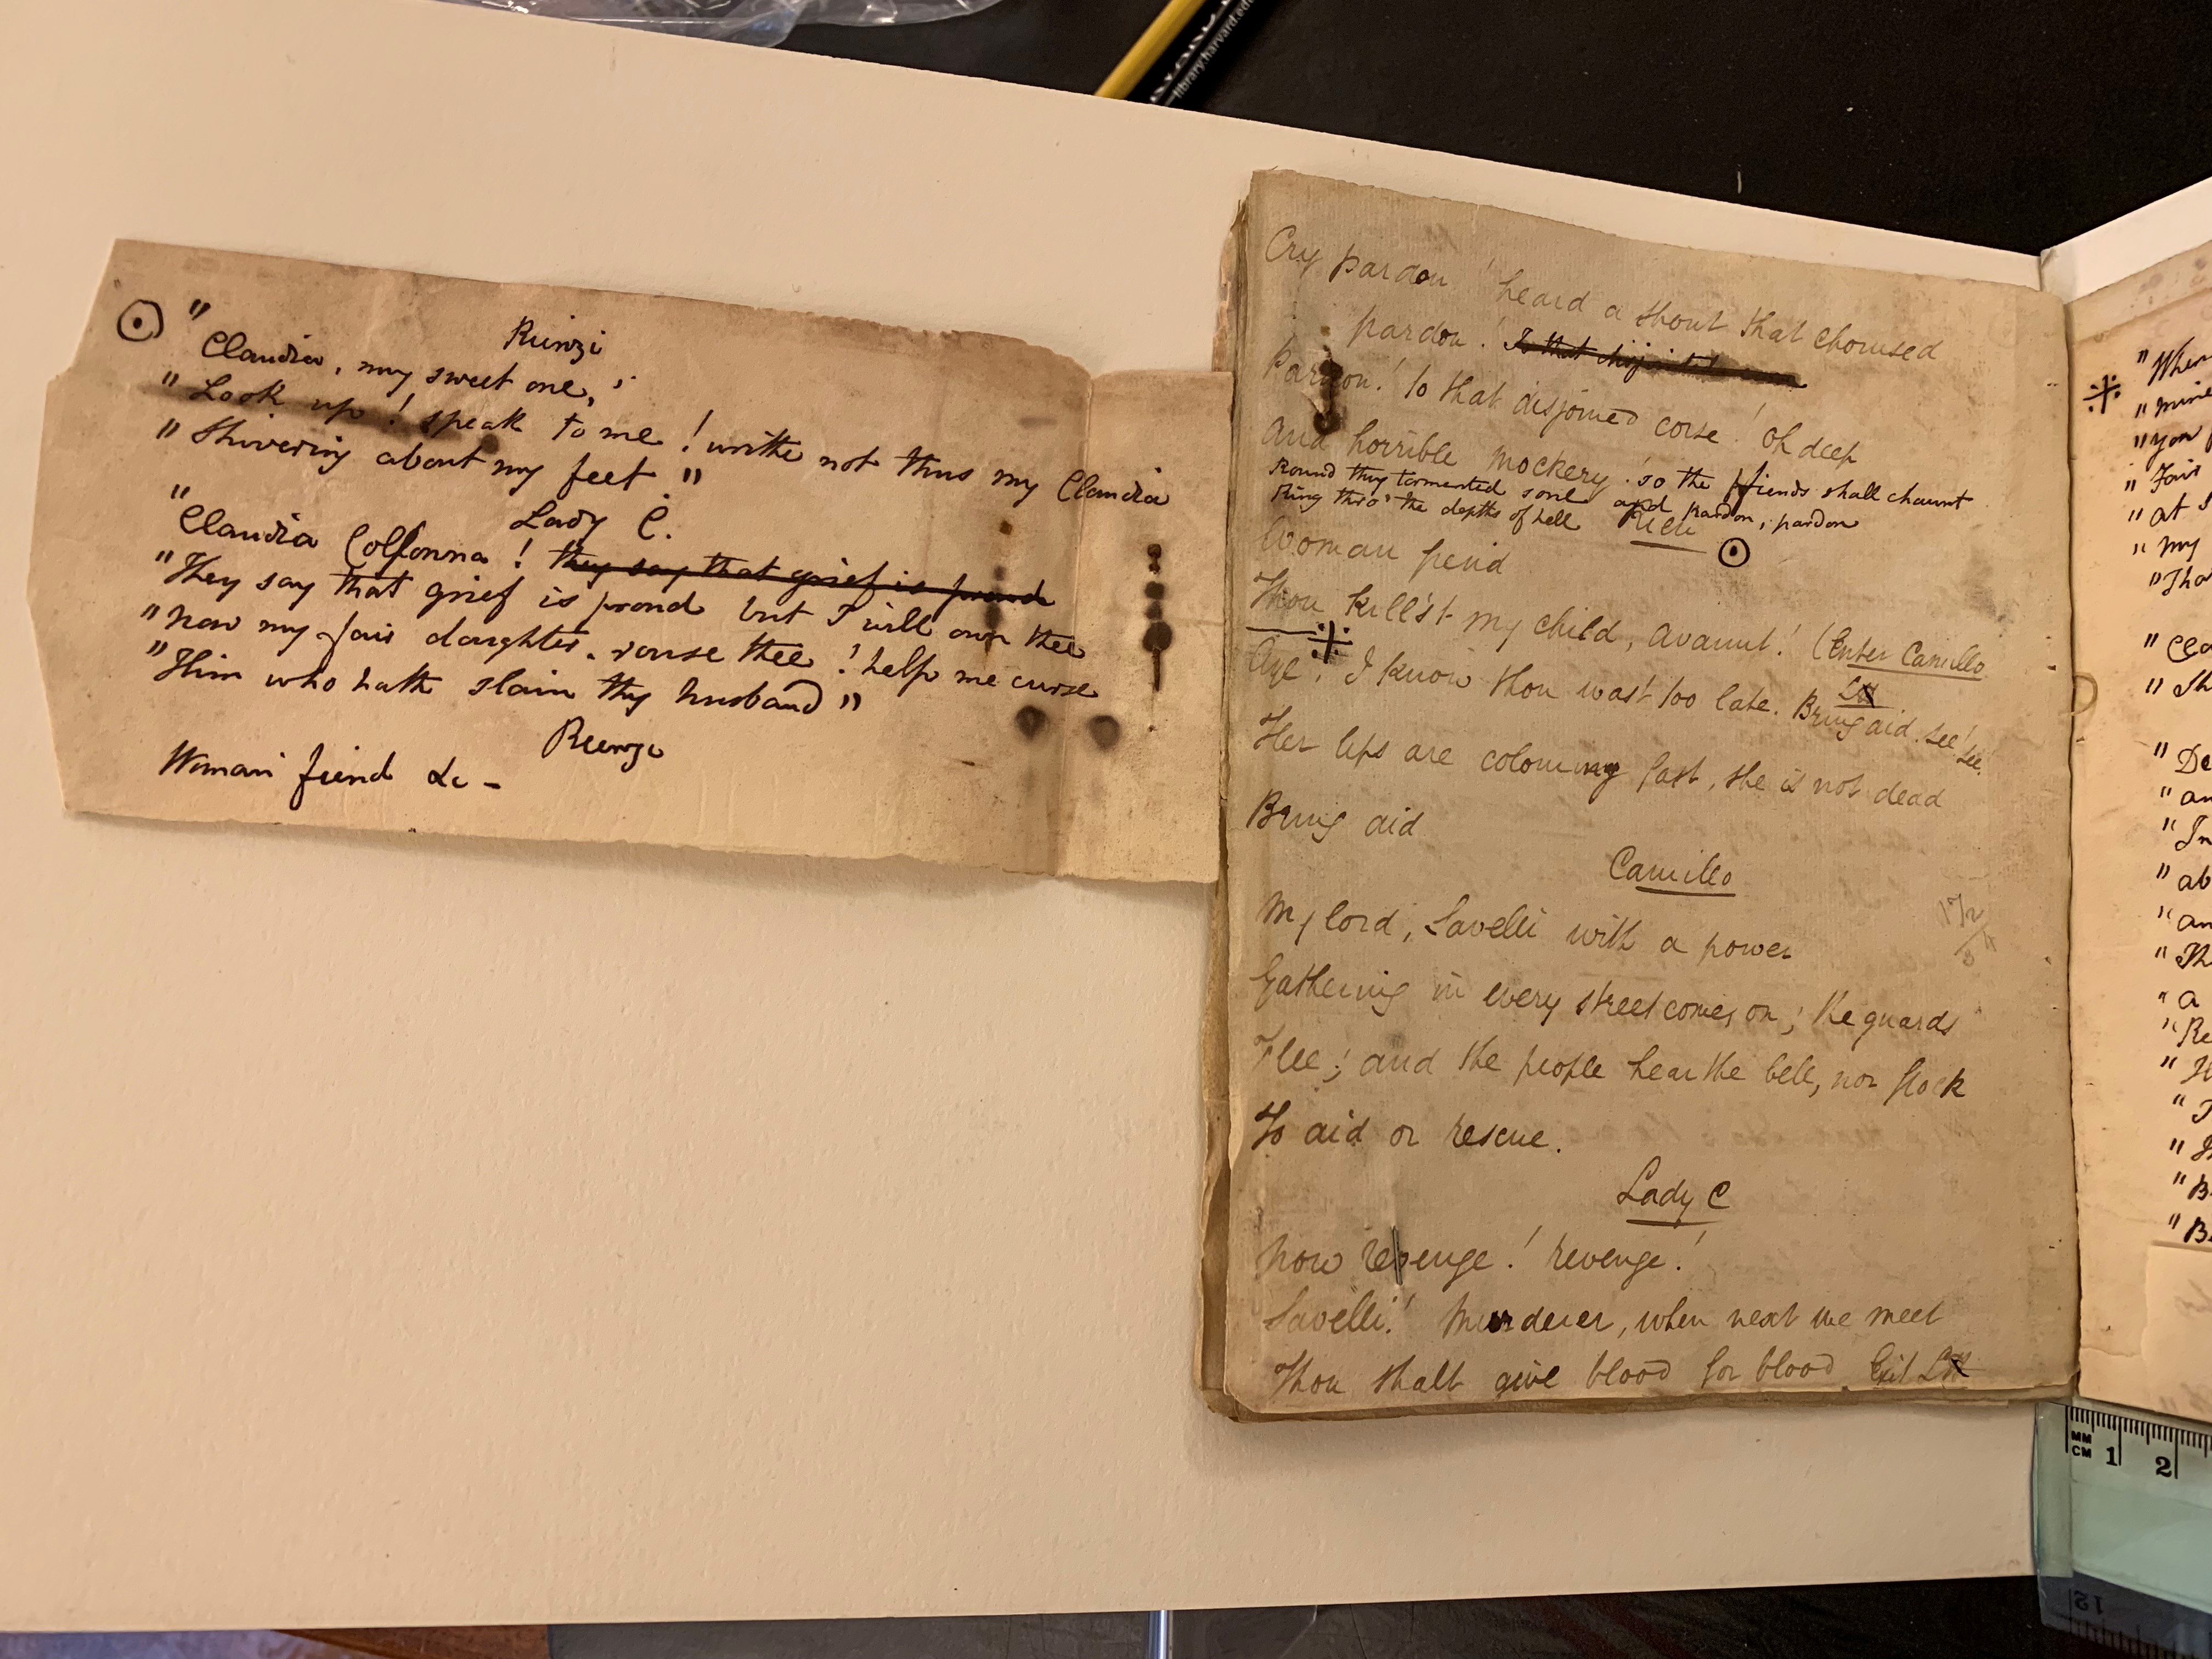 library.harvard.ed
Rienzi
" Claudia, my sweet one, "
" Look up! speak to me! writhe not thus my Claudia
" Shivering about my feet "
Lady C.
" Claudia Collonna! they say that grief is proud
" They say that grief is proud but I will own thee
" Now my fair daughter. rouse thee! help me curse
" Him who hath slain thy husband "
Rienzi
Woman fiend &c -
Cry pardon! heard a shout that chorused
pardon! To that disjointed
Pardon! To that disjoined corse! Oh deep
And horrible mockery! so the fiends shall chaunt
Round thy tormented soul and pardon, pardon
Ring thro' the depths of hell
Rien
Woman feind
Thou kill'st my child, avaunt! (Enter Camillo
Aye, I know thou wast too late. Bring aid. See! see.
Her lips are colouring fast, she is not dead
Bring aid
Camillo
My lord, Savelli with a power
Gathering in every street comes on; the guards
Flee; and the people hear the bell, nor flock
To aid or rescue.
Lady C
Now revenge! revenge!
Savelli! Murderer, when next we meet
Thou shalt give blood for blood Exit
" When
" mine
" you
" Fair
" at
" my
" Tha
" Cla
" Sh
" De
" an
" In
" ab
" an
" Th
" a
" Re
" H
" B
" B
MM
CM 1 2
12